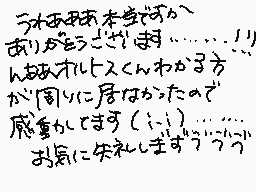 うわぁぁぁ本当ですか
ありがとうございます………!!
んああオルトスくんわかる方
が周りに居なかったので
感動してます(;-;)……
お気に失礼しますううう